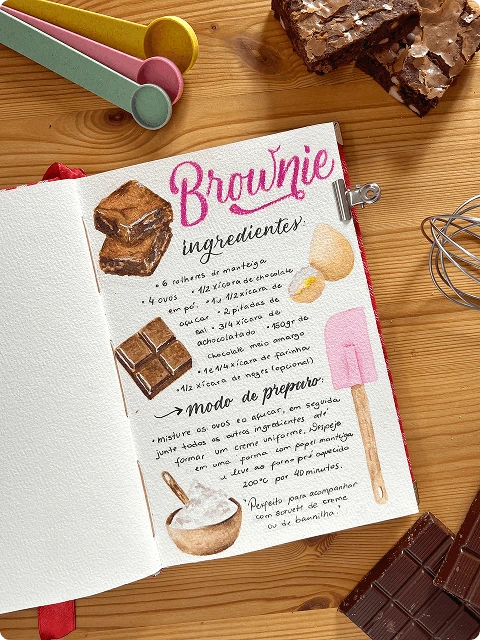 Brownie
ingredientes:
• 6 colheres de manteiga
• 4 ovos • 1/2 xícara de chocolate
em pó. • 1 e 1/2 xícara de
açucar • 2 pitadas de
sal • 3/4 xícara de
achocolatado • 150gr de
chocolate meio amargo
• 1 e 1/4 xícara de farinha
• 1/2 xícara de nozes (opcional)
→ modo de preparo:
• misture os ovos e o açucar, em seguida
junte todos os outros ingredientes até
formar um creme uniforme. Despeje
em uma forma com papel manteiga
e leve ao forno pré aquecido
200°C por 40 minutos.
"Perfeito para acompanhar
com sorvete de creme
ou de baunilha."